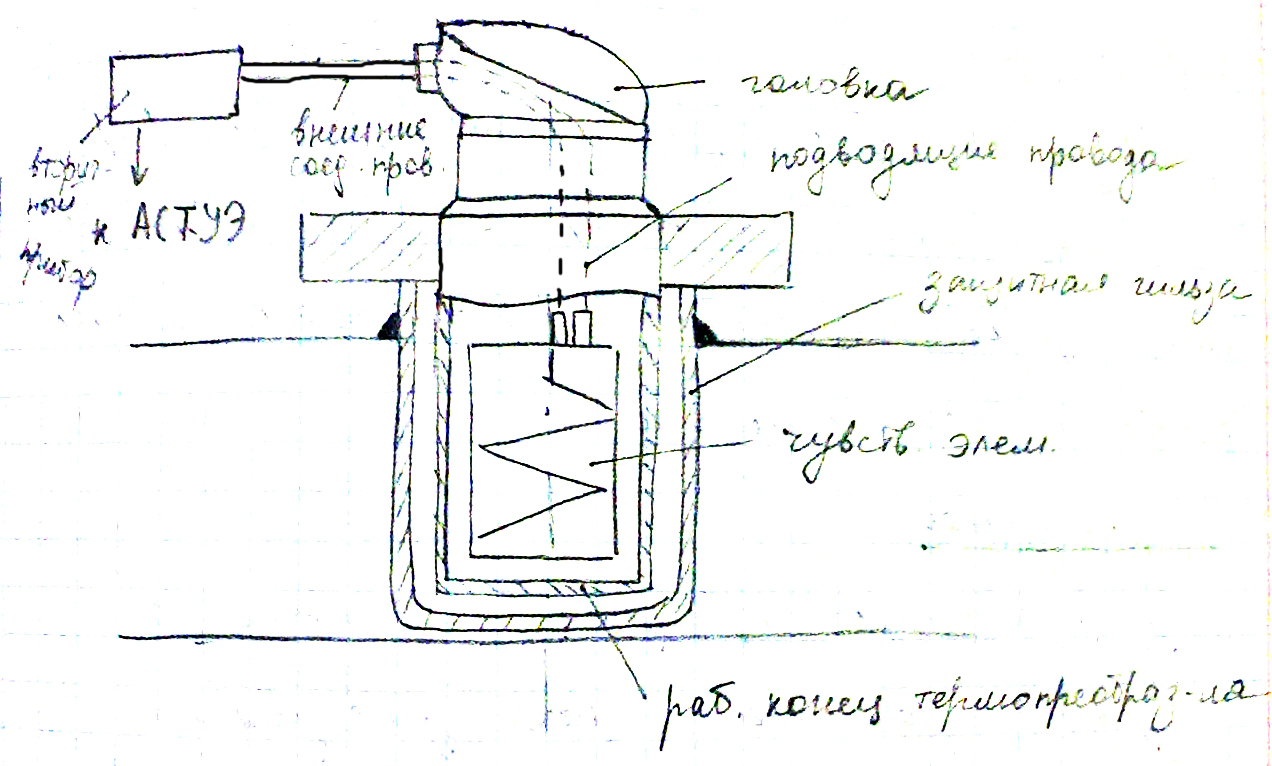 головка
внешние
соед. пров.
подводящие провода
вторич-
ный
прибор
к АСТУЭ
защитная гильза
чувств. элем.
раб. конец термопреобраз-ля